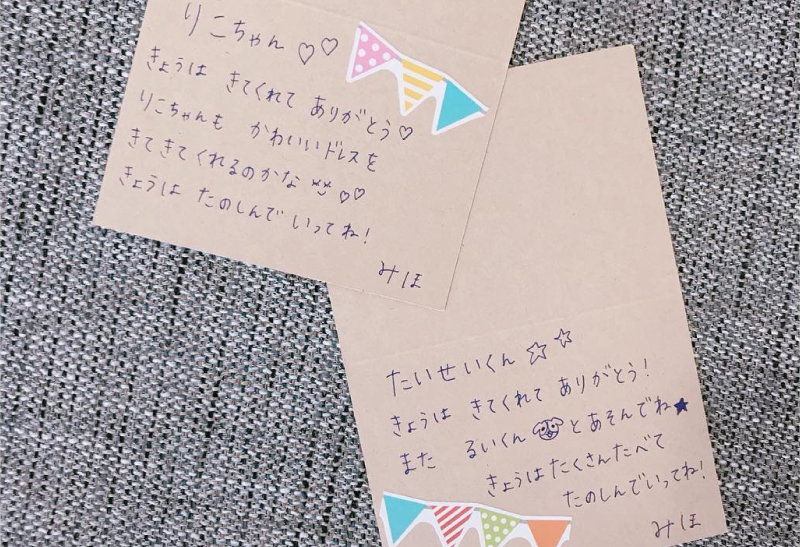 りこちゃん♡♡
きょうは きてくれて ありがとう♡
りこちゃんも かわいいドレスを
きてきてくれるのかな ♡♡
きょうは たのしんで いってね!
みほ
たいせいくん☆☆
きょうは きてくれて ありがとう!
また るいくん とあそんでね★
きょうはたくさんたべて
たのしんでいってね!
みほ